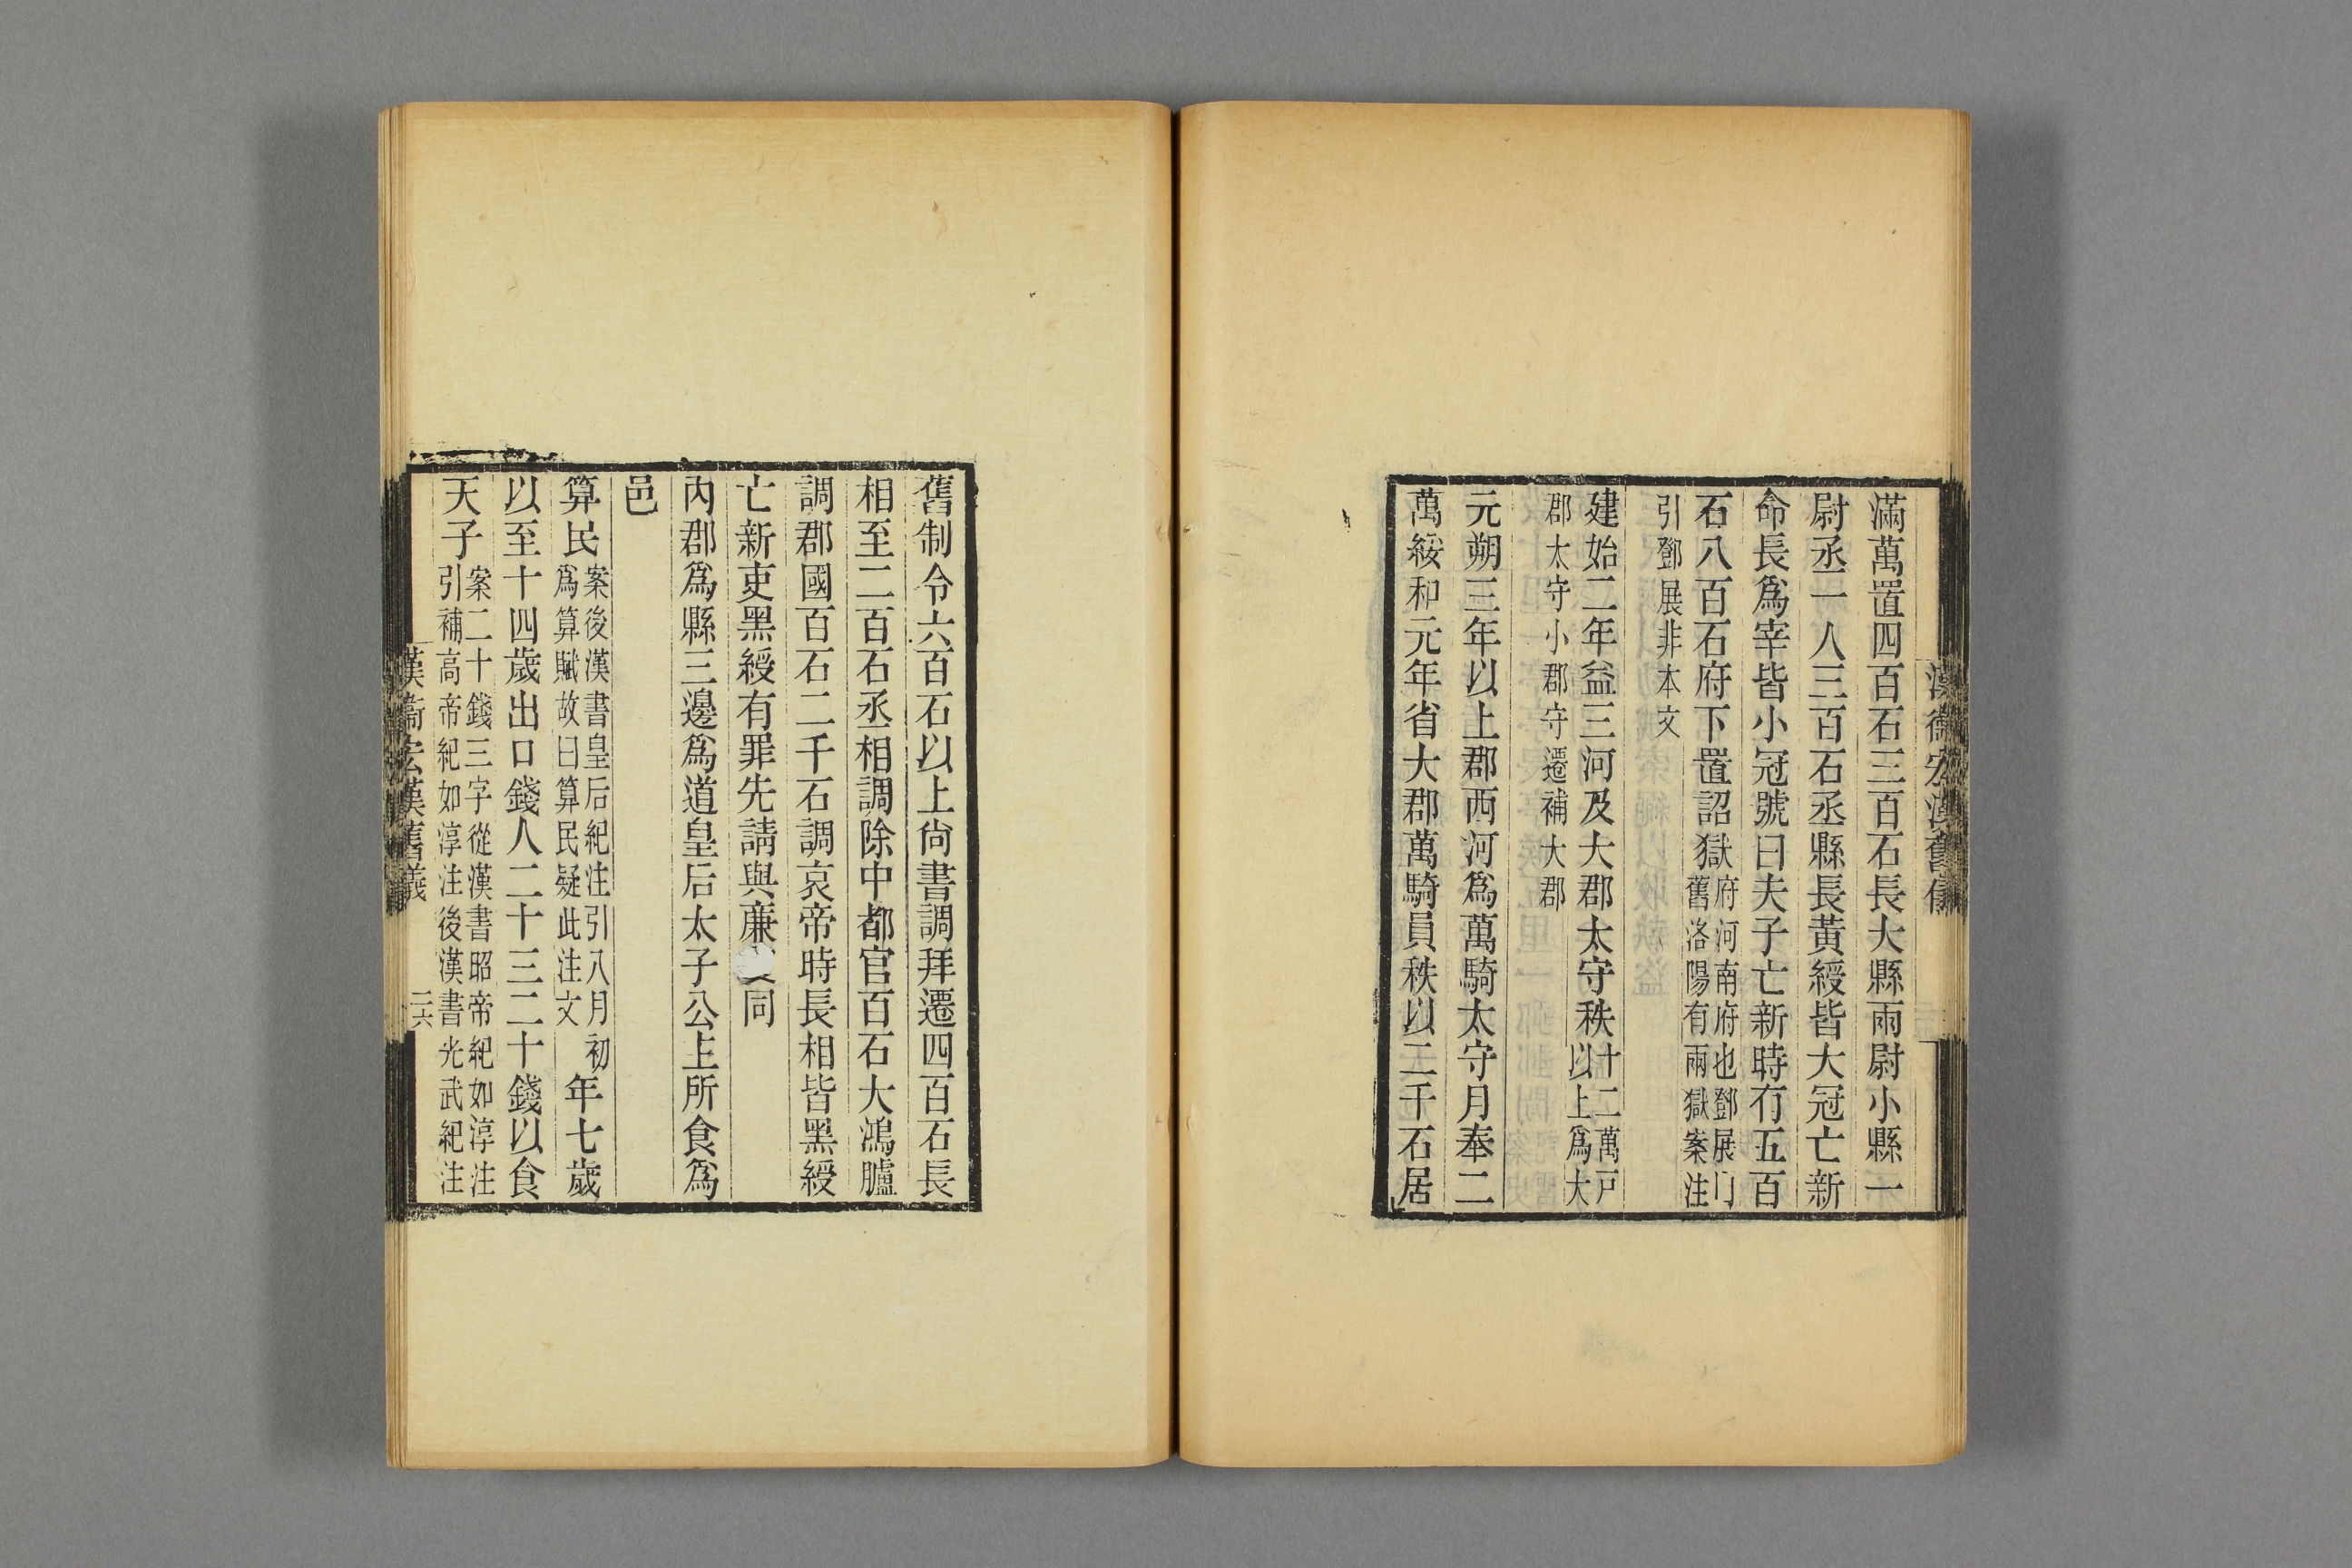 漢衞宏漢舊儀
滿萬置四百石三百石長大縣兩尉小縣一
尉丞一人三百石丞縣長黃綬皆大冠亡新
命長爲宰皆小冠號曰夫子亡新時冇五百
石八百石府下置詔獄府河南府也鄧展
舊洛陽有兩獄案注
引鄧展非本文
建始二年益三河及大郡太守秩十二萬戸
以上爲大
郡太守小郡守遷補大郡
元朔三年以上郡西河爲萬騎太守月奉二
萬綏和元年省大郡萬騎員秩以二千石居
舊制令六百石以上尙書調拜遷四百石長
相至二百石丞相調除中都官百石大鴻臚
調郡國百石二千石調哀帝時長相皆黑綬
亡新吏黑綬有罪先請與廉同
內郡爲縣三邊爲道皇后太子公主所食爲
邑
算民案後漢書皇后紀注引八月初
爲算賦故曰算民疑此注文
年七歲
以至十四歲出口錢人二十三二十錢以食
天子案二十錢三字從漢書昭帝紀如淳注
引補高帝紀如淳注後漢書光武紀注
漢衞宏漢舊儀
二六